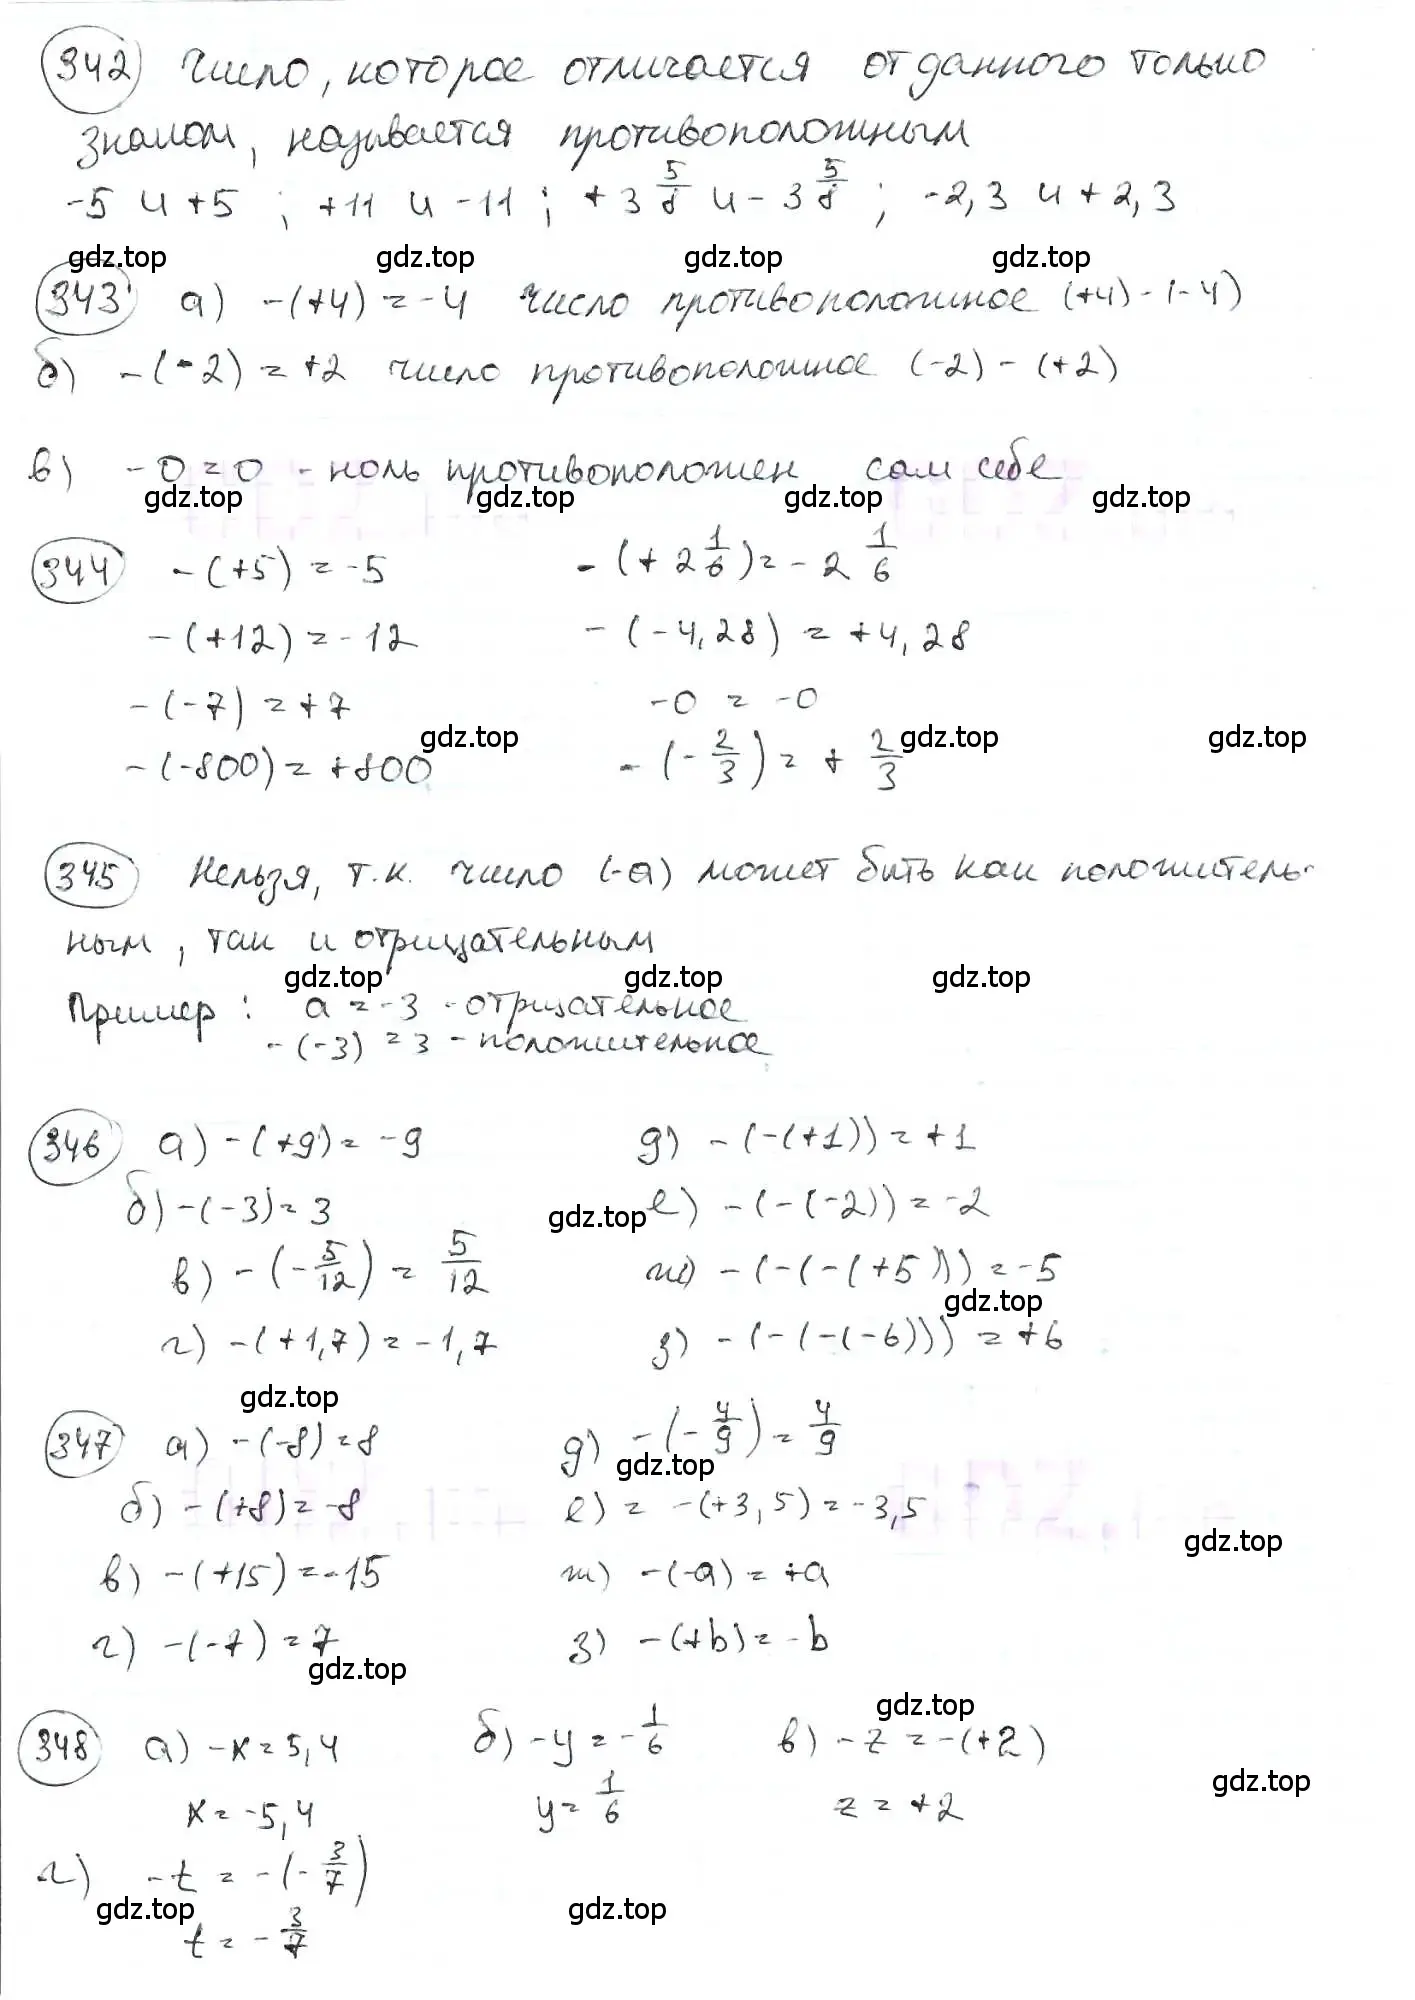 342 Число, которое отличается от данного только
знаком, называется противоположным
-5 и +5 ; +11 и -11 ; +3 5/8 и -3 5/8 ; -2,3 и +2,3
gdz.top gdz.top gdz.top gdz.top
343 а) -(+4) = -4 число противоположное (+4) - (-4)
б) -(-2) = +2 число противоположное (-2) - (+2)
в) -0 = 0 - ноль противоположен сам себе
gdz.top gdz.top gdz.top gdz.top
344 -(+5) = -5 -(+2 1/6) = -2 1/6
-(+12) = -12 -(-4,28) = +4,28
-(-7) = +7 -0 = -0
gdz.top gdz.top gdz.top
-(-800) = +800 -(-2/3) = +2/3
345 Нельзя, т.к. число (-а) может быть как положитель-
ным, так и отрицательным
gdz.top gdz.top gdz.top
Пример : а = -3 - отрицательное
-(-3) = 3 - положительное
346 а) -(+9) = -9 д) -(-(+1)) = +1
б) -(-3) = 3 gdz.top е) -(-(-2)) = -2
в) -(-5/12) = 5/12 ж) -(-(-(+5))) = -5
gdz.top
г) -(+1,7) = -1,7 з) -(-(-(-6))) = +6
gdz.top
347 а) -(-8) = 8 д) -(-4/9) = 4/9
gdz.top
б) -(+8) = -8 е) = -(+3,5) = -3,5
gdz.top
в) -(+15) = -15 ж) -(-а) = +а
г) -(-7) = 7 з) -(+b) = -b
gdz.top
gdz.top
348 а) -x = 5,4 б) -y = -1/6 в) -z = -(+2)
gdz.top
x = -5,4 y = 1/6 z = +2
г) -t = -(-3/7)
gdz.top gdz.top
t = -3/7